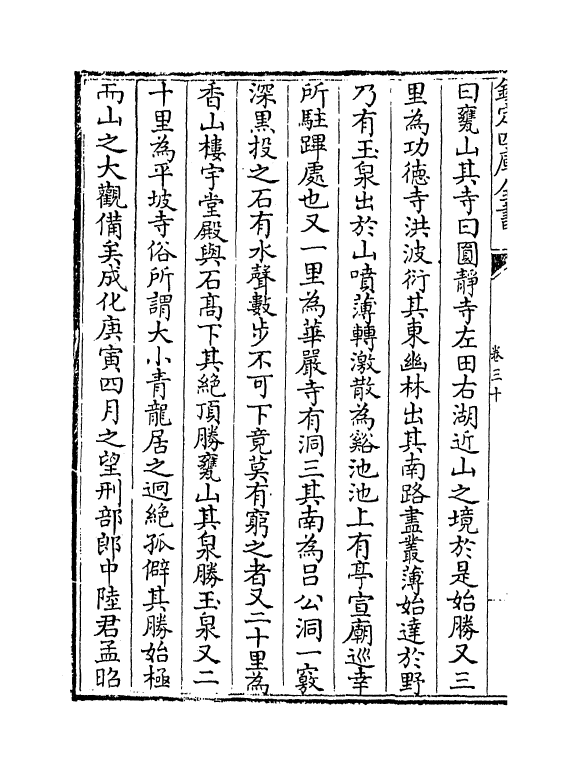 欽定四庫全書
卷三十
曰甕山其寺曰圓靜寺左田右湖近山之境於是始勝又三
里為功德寺洪波衍其東幽林出其南路盡叢薄始達於野
乃有玉泉出於山噴薄轉激散為谿池池上有亭宣廟巡幸
所駐蹕處也又一里為華嚴寺有洞三其南為呂公洞一竅
深黑投之石有水聲數步不可下竟莫有窮之者又二十里為
香山樓宇堂殿與石高下其絶頂勝甕山其泉勝玉泉又二
十里為平坡寺俗所謂大小青龍居之迥絶孤僻其勝始極
而山之大觀備矣成化庚寅四月之望刑部郎中陸君孟昭